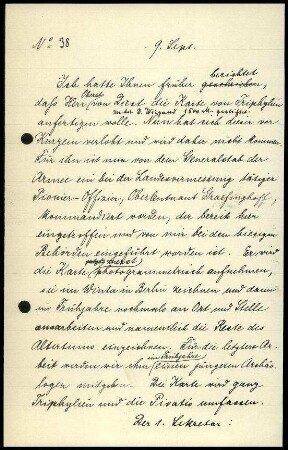 No 38 9. Sept.
berichtet
Ich hatte Ihnen früher geschrieben,
Oberst
dass Herr von Diest die Karte von Triphylien
unter d. Weyand
anfertigen wolle. Nun hat sich dieser vor
Kurzem verlobt und wird daher nicht kommen.
Für ihn ist nun von dem Generalstab der
Armee ein bei der Landesvermessung tätiger
Pionier-Offizier, Oberleutnant Graefinghoff,
kommandiert worden, der bereit hier
eingetroffen und von mir bei den hiesigen
Behörden eingeführt worden ist. Er wird
die Karte photogrammetrisch aufnehmen,
sie im Winter in Berlin zeichnen und dann
im Frühjahre nochmals an Ort und Stelle
ausarbeiten und namentlich die Reste des
Altertums einzeichnen. Für die letztere Ar-
im Frühjahre
beit werden wir ihm einen jüngeren Archäo-
logen mitgeben. Die Karte wird ganz
Triphylien und die Pisatis umfassen.
Der 1. Sekretar: